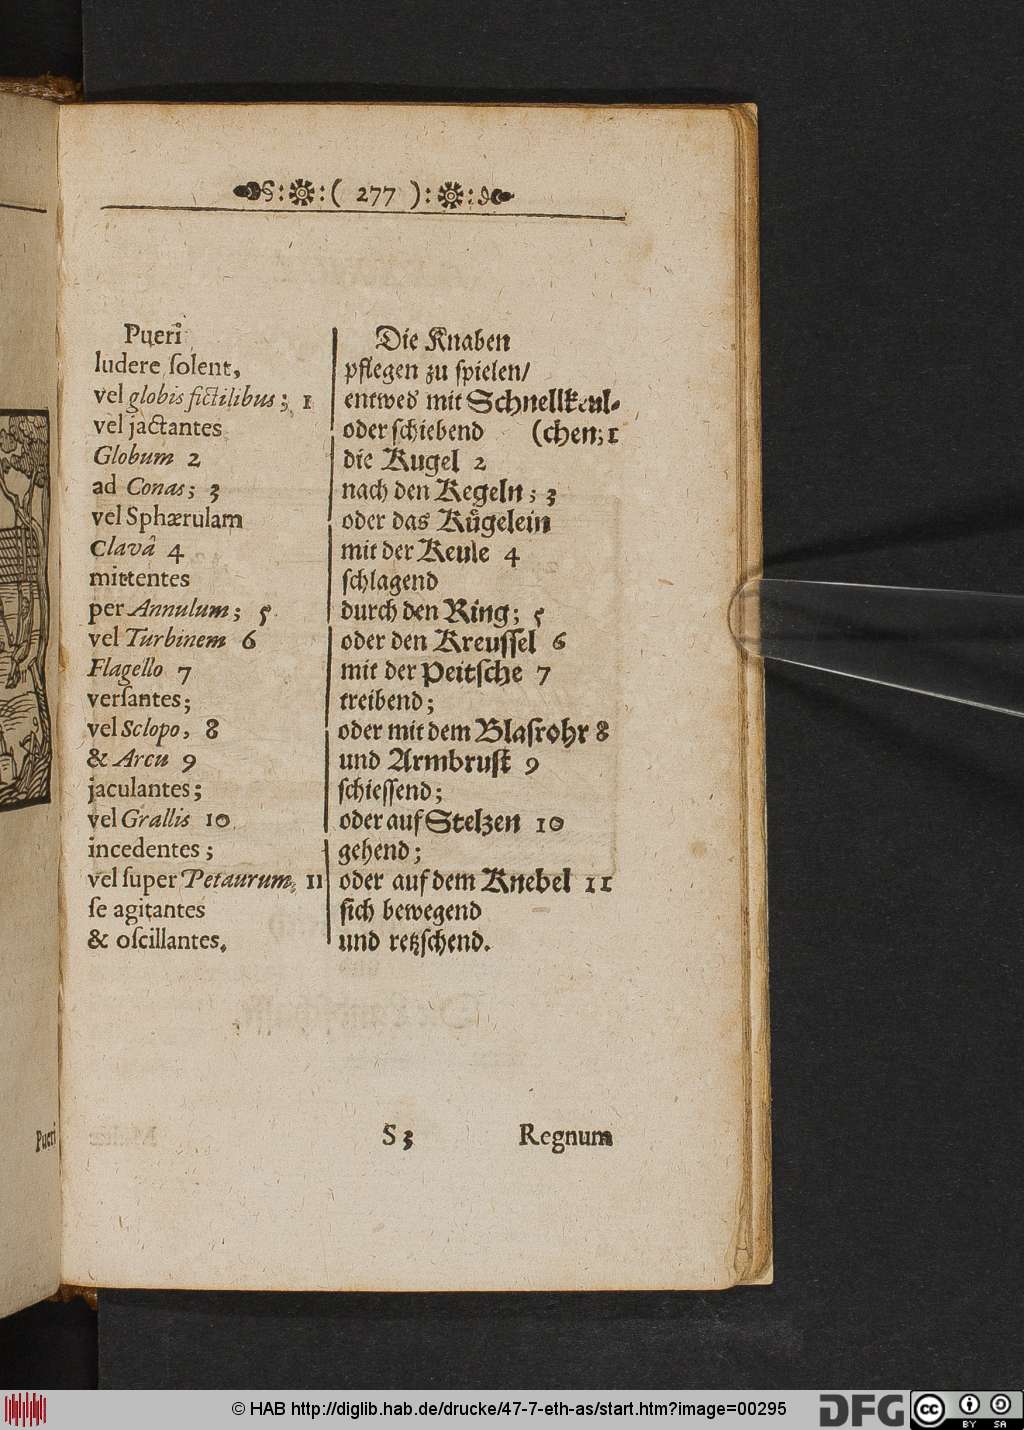 ( 277 )
Pueri
ludere ſolent,
vel globis fictilibus; 1
vel jactantes
Globum 2
ad Conas; 3
vel Sphærulam
Clavâ 4
mittentes
per Annulum; 5
vel Turbinem 6
Flagello 7
verſantes;
vel Sclopo, 8
& Arcu 9
jaculantes;
vel Grallis 10
incedentes;
vel ſuper Petaurum, 11
ſe agitantes
& oſcillantes.
Die Knaben
pflegen zu ſpielen/
entwed' mit Schnellkeul-
oder ſchiebend (chen; 1
die Kugel 2
nach den Kegeln; 3
oder das Kuͤgelein
mit der Keule 4
ſchlagend
durch den Ring; 5
oder den Kreuſſel 6
mit der Peitſche 7
treibend;
oder mit dem Blasrohr 8
und Armbruſt 9
ſchieſſend;
oder auf Stelzen 10
gehend;
oder auf dem Knebel 11
ſich bewegend
und retzſchend.
S 3 Regnum
Pueri
© HAB http://diglib.hab.de/drucke/47-7-eth-as/start.htm?image=00295
DFG
cc BY SA